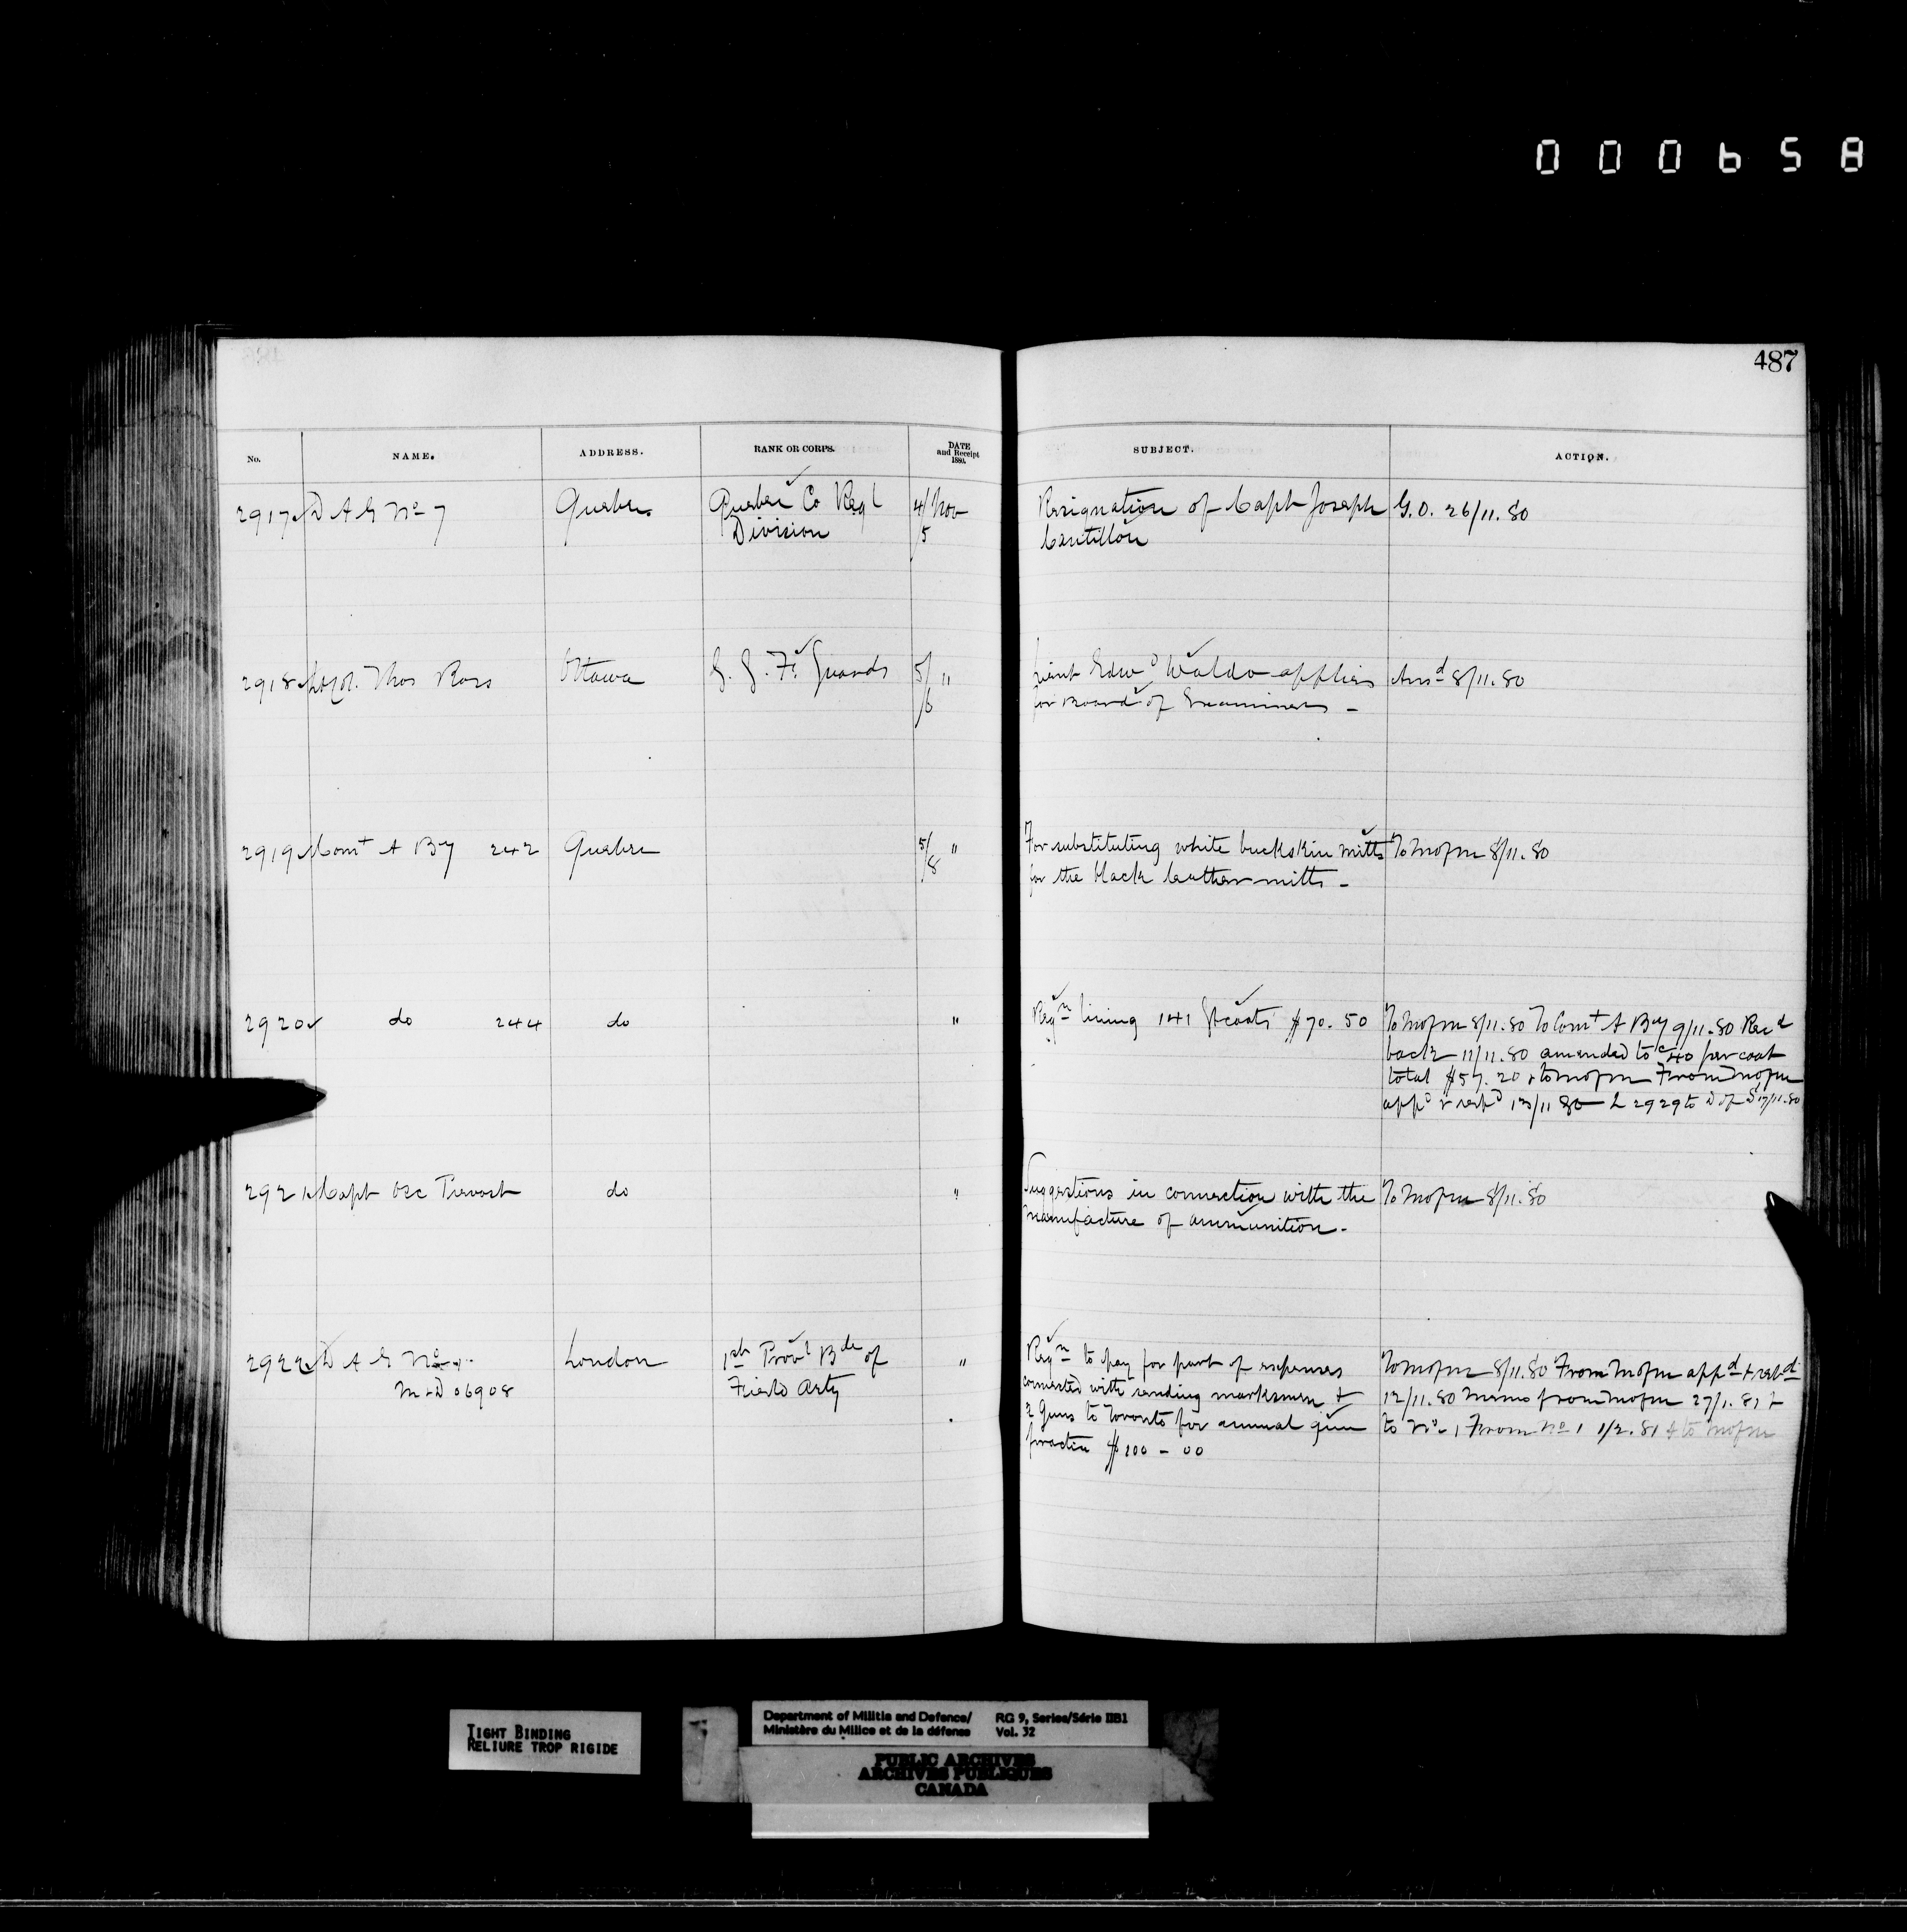 000658
487
No. NAME. ADDRESS. RANK OR CORPS. DATE and Receipt 1880. SUBJECT. ACTION.
2917 D A G No 7 Quebec Quebec Co Regl 4/Nov Resignation of Capt Joseph G.O. 26/11.80
Division 5 Cantillon
2918 Lt Col. Thos Ross Ottawa G. G. Ft Guards 5/ " Lieut Edwd Waldo applies Ansd 8/11.80
6 for Board of Examiners -
2919 Comt A By 242 Quebec 5/ " For substituting white buckskin mitts To Mofm 8/11.80
8 for the black leather mitts -
2920 do 244 do " Reqn lining 141 Gt coats $70.50 To Mofm 8/11.80 To Comt A By 9/11.80 Recd
back 11/11.80 amended to c40 per coat
total $57.20 & to Mofm From Mofm
appd & retd 13/11 80 L 2929 to D of S 17/11.80
2921 Capt Osc Prevost do " Suggestions in connection with the To Mofm 8/11.80
manufacture of ammunition.-
2922 D A G No 1. London 1st Provl Bde of " Reqn to pay for part of expenses To Mofm 8/11.80 From Mofm appd & retd
M & D 06908 Field Arty connected with sending marksmen & 12/11.80 Memo from Mofm 27/1.81 &
2 Guns to Toronto for annual gun to No 1 From No 1 1/2.81 & to Mofm
practice $100-00
TIGHT BINDING
RELIURE TROP RIGIDE
Department of Militia and Defence/ RG 9, Series/Série IIB1
Ministère du Milice et de la défense Vol. 32
PUBLIC ARCHIVES
ARCHIVES PUBLIQUES
CANADA